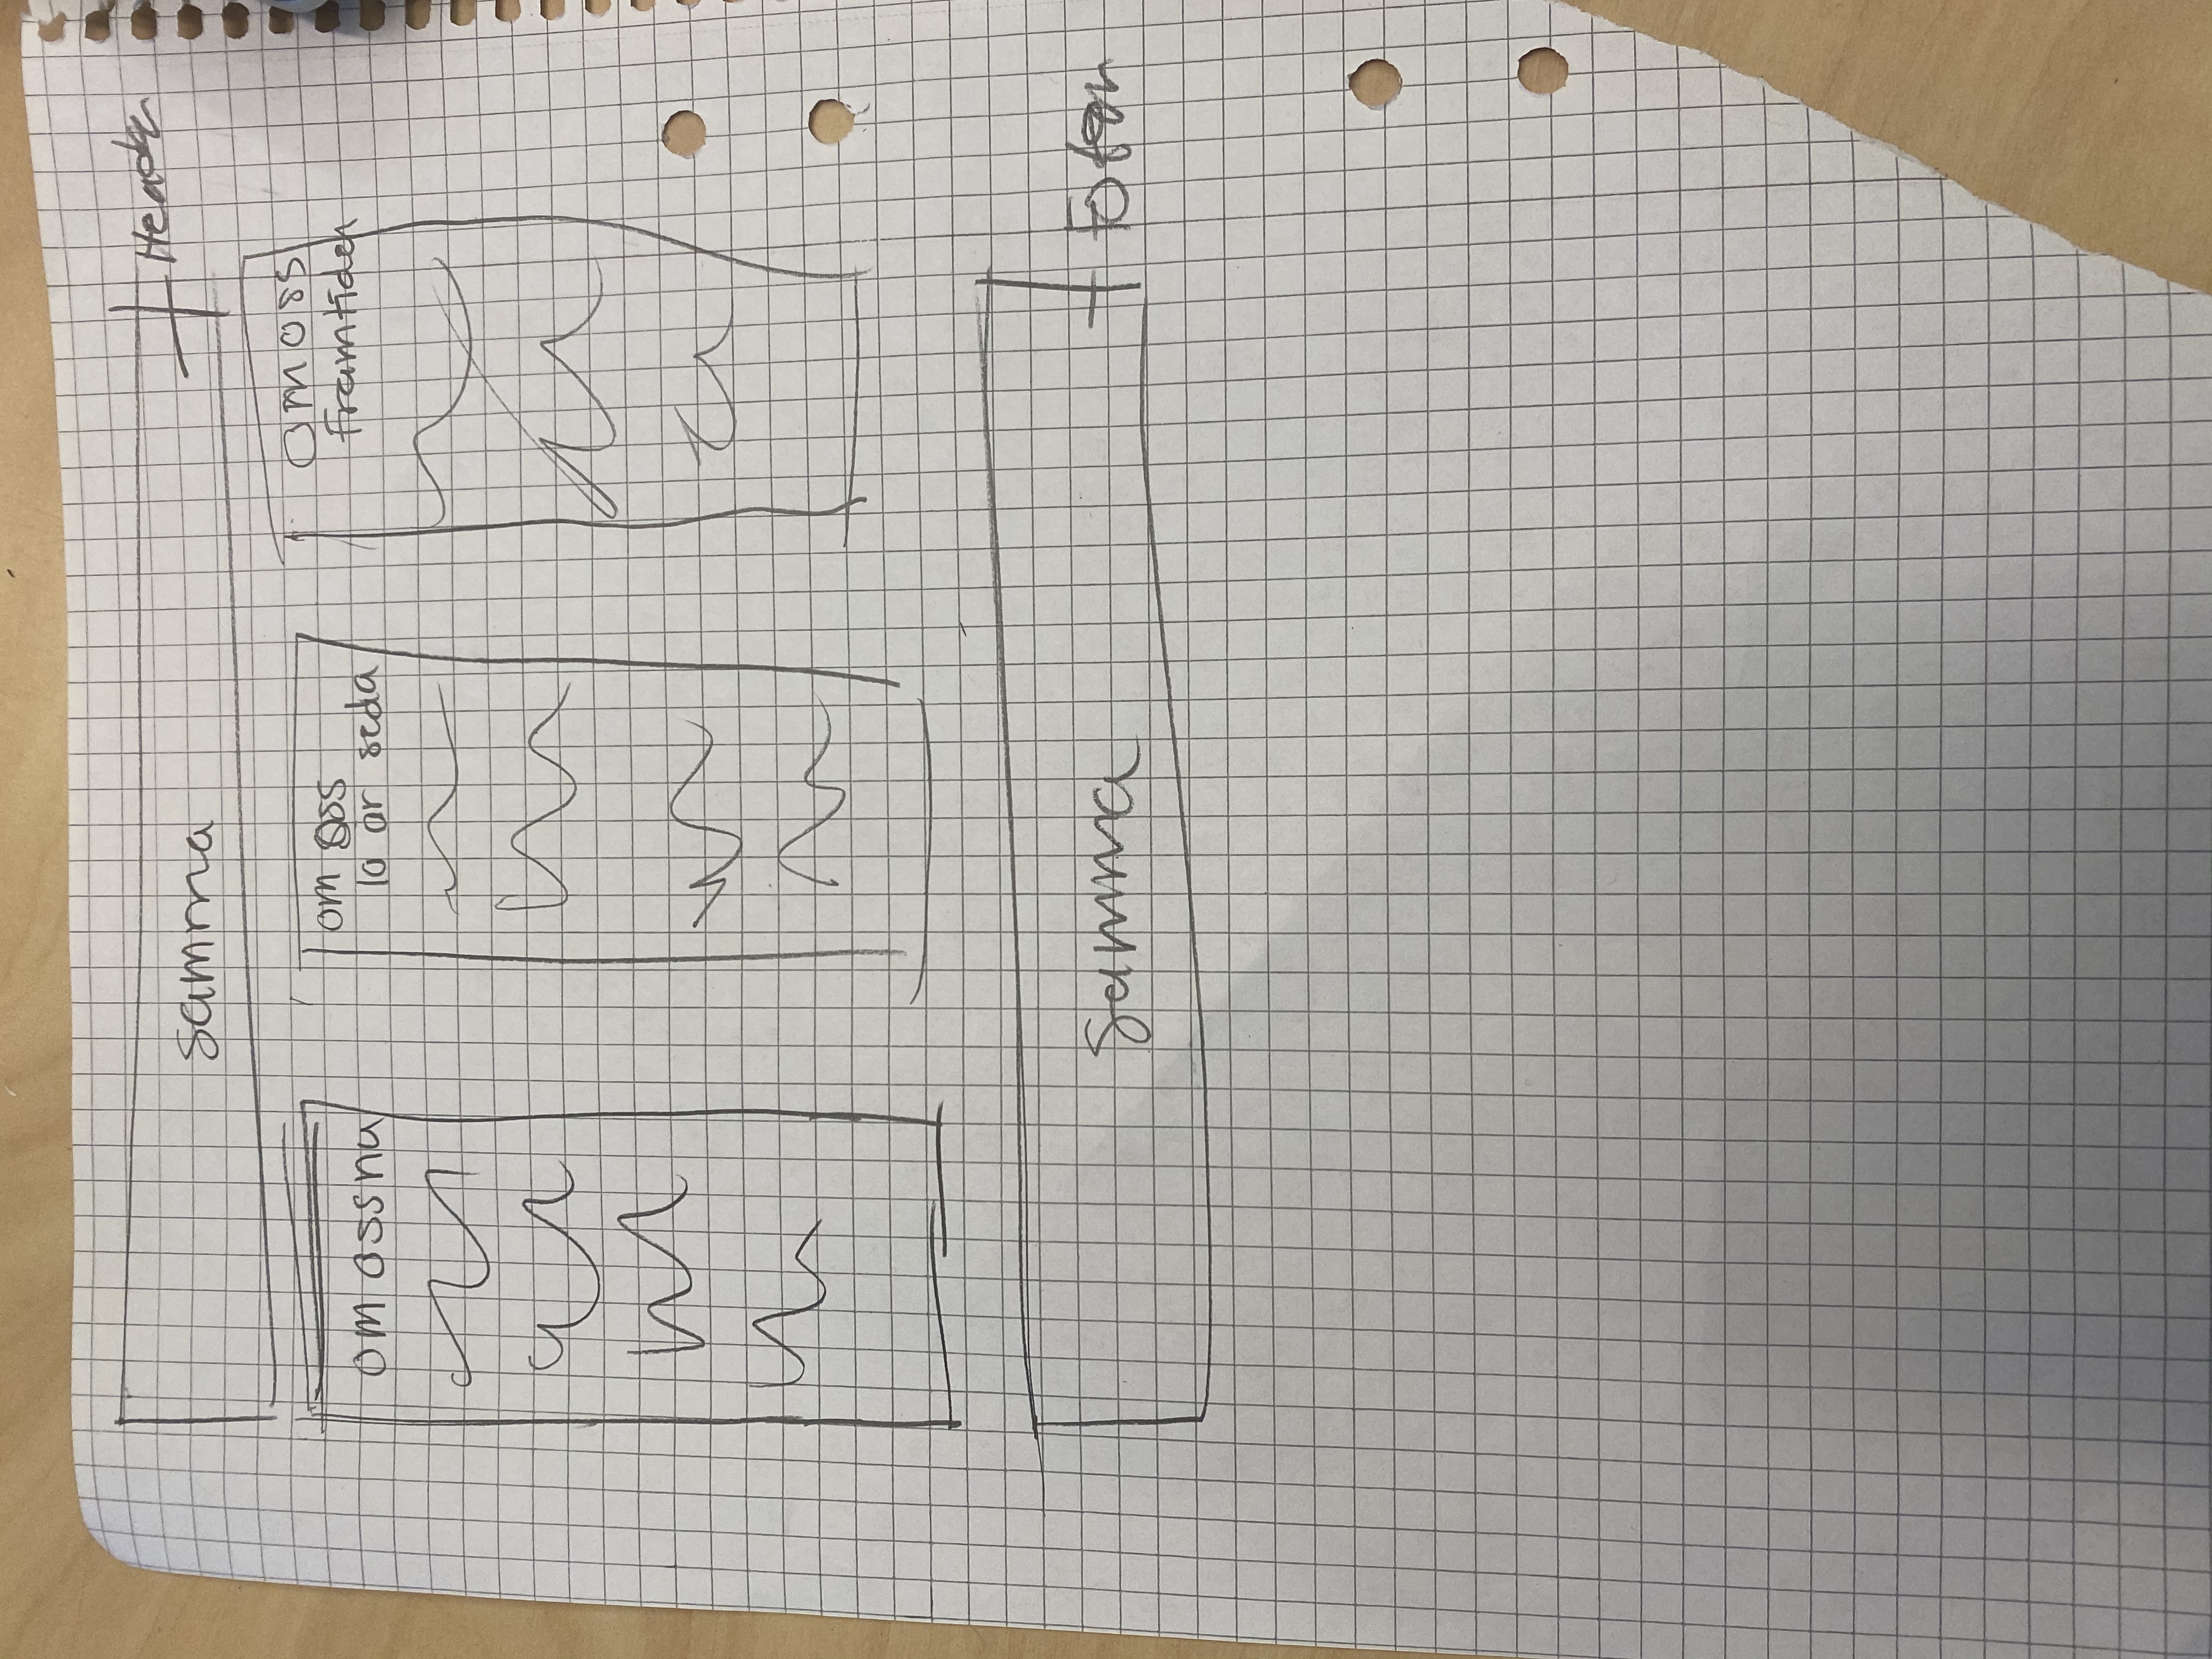 samma
Header
om oss nu
om oss
10 år seda
om oss
framtiden
samma